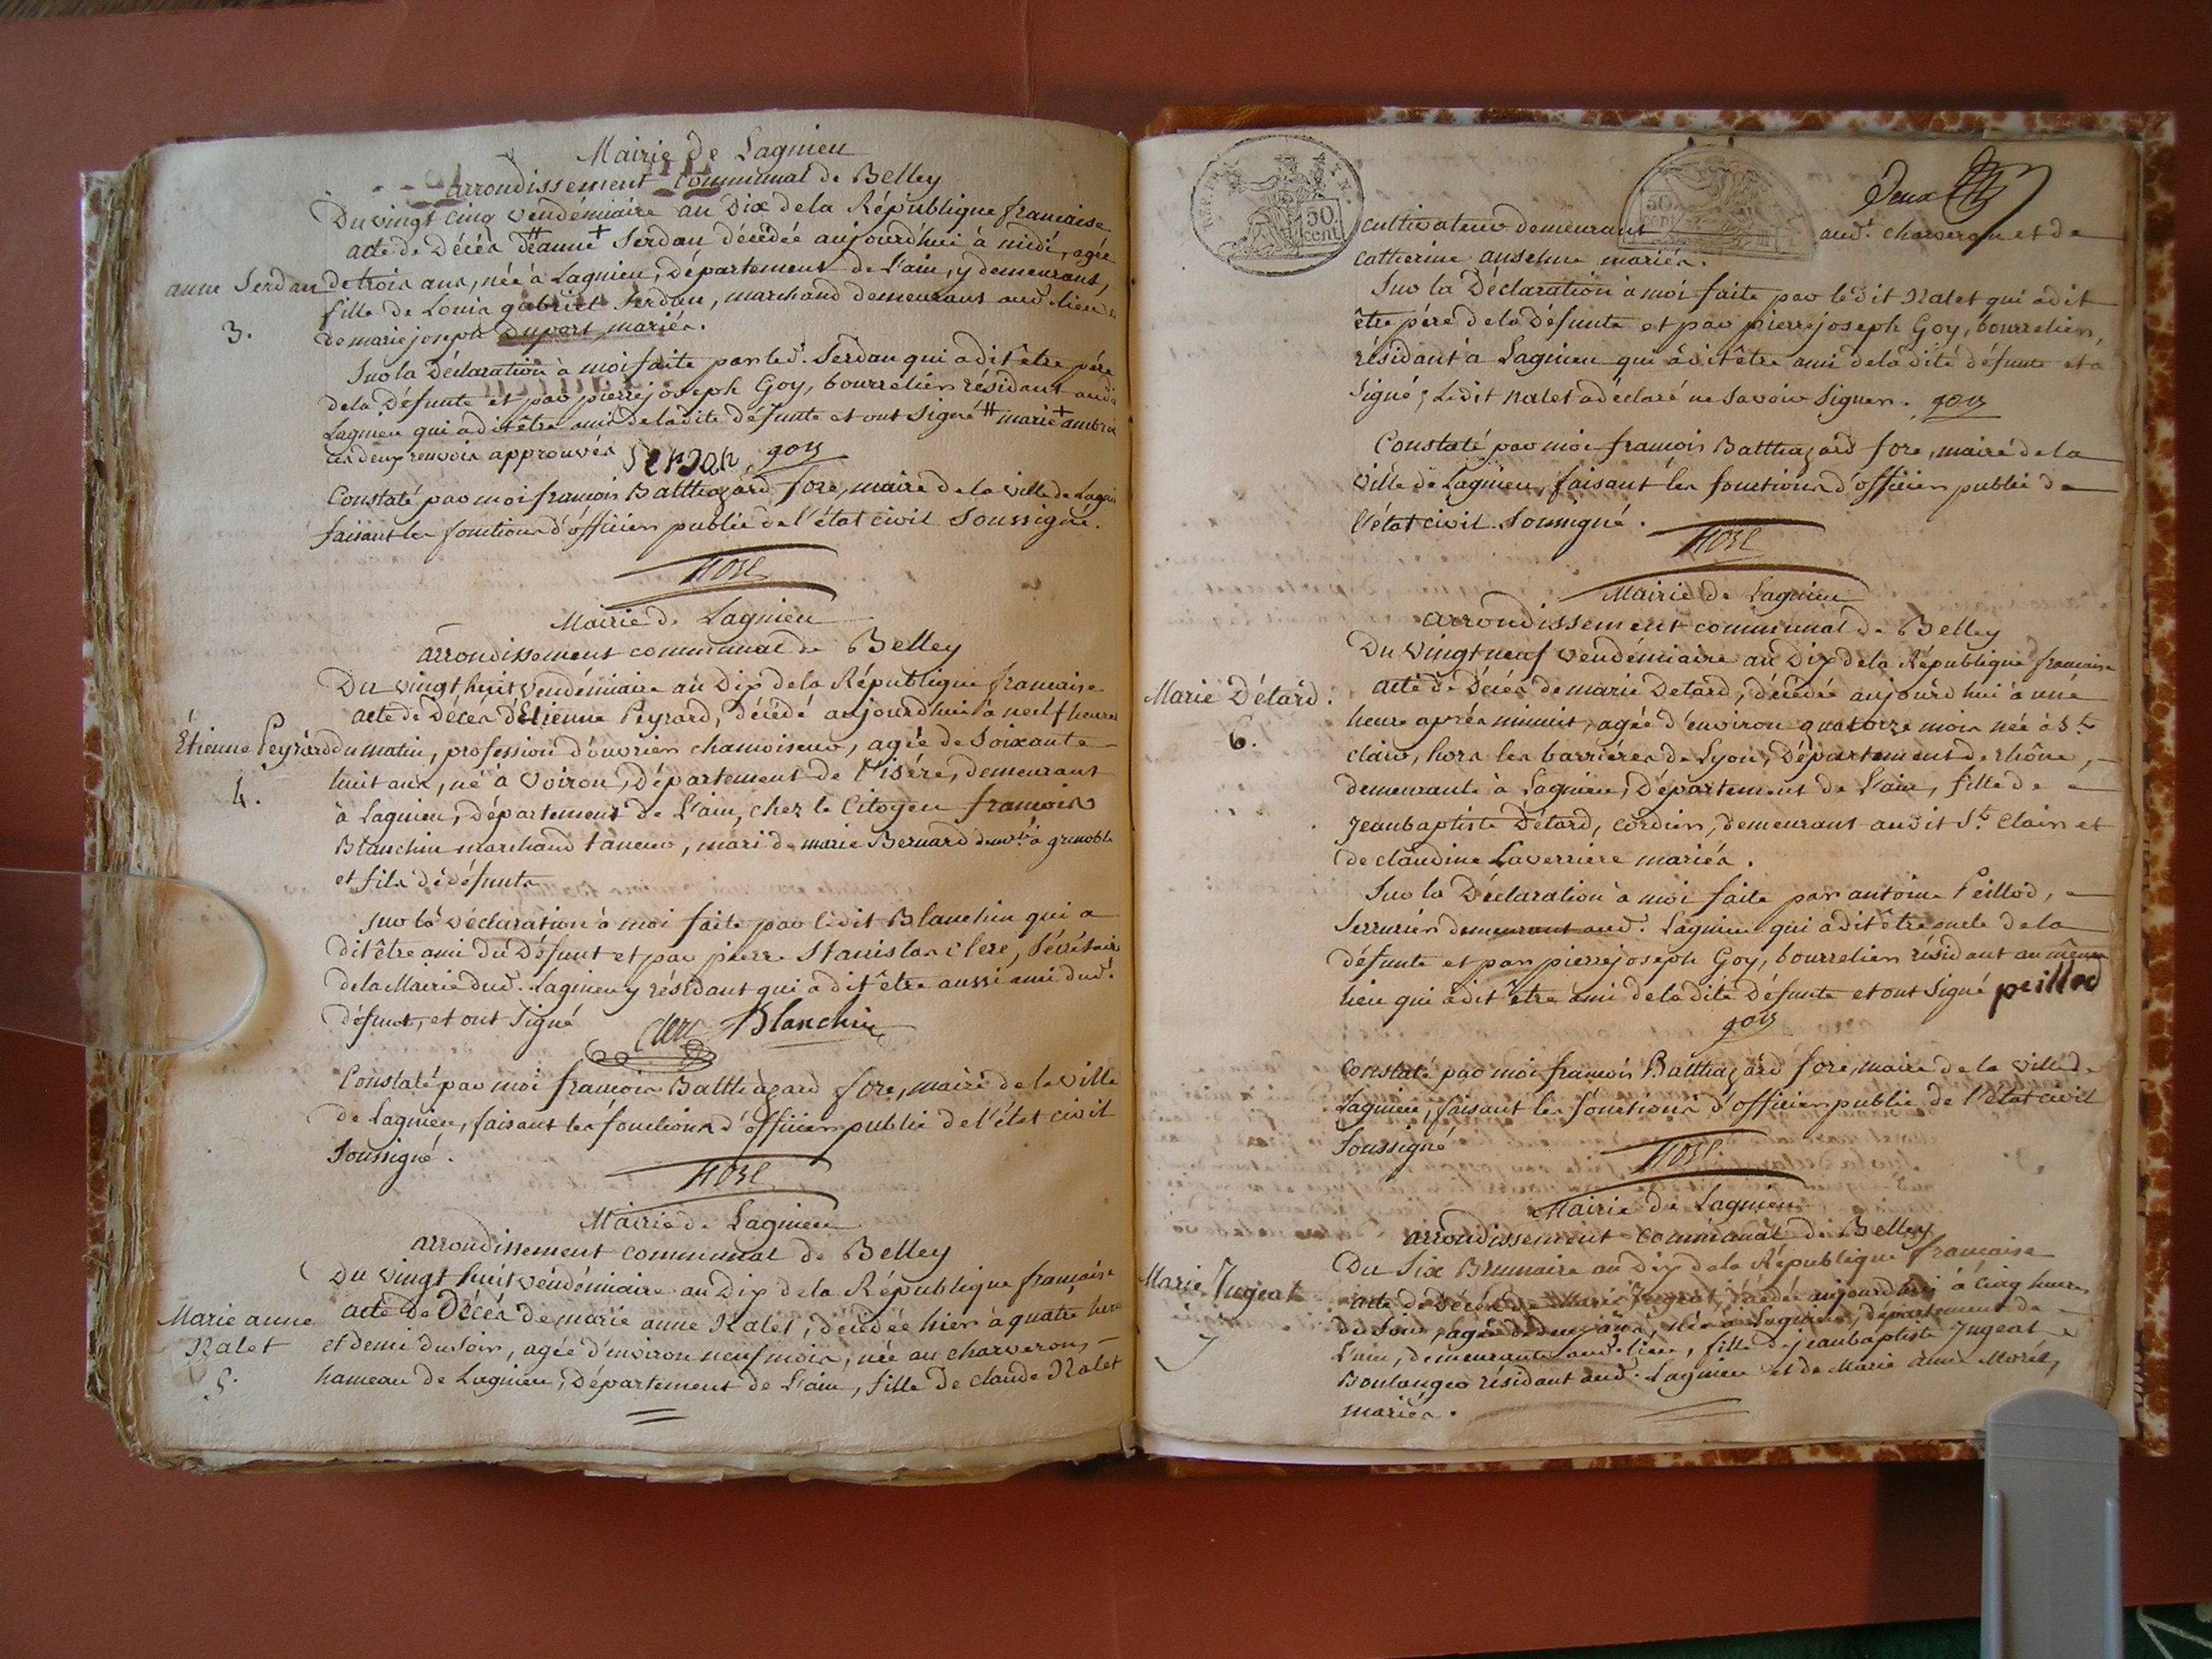 Mairie de Lagnieu
arrondissement communal de Belley
Du vingt cinq vendémiaire an Dix dela République francaise
acte de Décés # anne + Serdan décédée aujourd'hui à midi, agée
anne Serdan
3.
de trois ans, née à Lagnieu, Département de l'ain, y demeurant,
fille de Louis gabriel Serdan, marchand demeurant aud. lieu &
de marie joseph Duport mariés.
Sur la Déclaration à moi faite par led. Serdan qui a dit être père
dela Défunte et par pierre joseph Goy, bourrelier résidant aud.
Lagnieu qui a dit être ami deladite défunte et ont signé # marie + ambr
les deux renvois approuvés Serdan, goy
Constaté par moi françois Balthazard fore, maire dela ville de Lagnieu
faisant les fonctions d'officier public de l'état civil Soussigné.
fore
Mairie de Lagnieu
arrondissement communal de Belley
Du vingt huit vendémiaire an Dix dela République francaise
acte de Décés d'Etienne Peyrard, décédé aujourd'hui à neuf heures
Étienne Peyrard
4.
du matin, profession d'ouvrier chamoiseur, agée de Soixante
huit ans, né à Voiron, Département de l'isére, demeurant
à Lagnieu, département de L'ain, chez le Citoyen francois
Blanchin marchand taneur, mari de marie Bernard demte à grenoble
et fils de défunts
Sur la Déclaration à moi faite par ledit Blanchin qui a
dit être ami du Défunt et par pierre Stanislas clerc, Sécrétaire
dela Mairie dud. Lagnieu y résidant qui a dit être aussi ami dud.
défunt, et ont signé clerc Blanchin
Constaté par moi françois Balthazard fore, maire de la ville
de Lagnieu, faisant les fonctions d'officier public de l'état civil
Soussigné.
fore
Mairie de Lagnieu
arrondissement communal de Belley
Du vingt huit vendémiaire an Dix dela République française
Marie anne
Nalet
5.
acte de Décés de marie anne Nalet, décédée hier à quatre heures
et demi du Soir, agée d'environ neuf mois, née au charveron,
hameau de Lagnieu, Département de l'ain, fille de claude Nalet
REP. FRA.
50
cent
50
cent
Deux
cultivateur demeurant aud. charveron et de
catherine anselme mariés.
Sur la Déclaration à moi faite par ledit Nalet qui a dit
être père dela défunte et par pierre joseph Goy, bourrelier,
résidant à Lagnieu qui a dit être ami deladite défunte et a
Signé; Ledit Nalet a déclaré ne savoir Signer. goy
Constaté par moi françois Balthazard fore, maire dela
ville de Lagnieu, faisant les fonctions d'officier public de
l'état civil Soussigné.
fore
Mairie de Lagnieu
arrondissement communal de Belley
Du vingt neuf vendémiaire an Dix dela République francaise
Marie Détard.
6.
acte de Décés de marie Detard, décédée aujourd'hui à une
heure après minuit, agée d'environ quatorze mois née à St
clair, hors les barrières de Lyon, Département de rhône,
demeurante à Lagnieu, Département de L'ain, fille de
Jeanbaptiste Détard, cordier, demeurant audit St. Clair et
de claudine Laverriere mariés.
Sur la Déclaration à moi faite par antoine Peillod,
Serrurier demeurant aud. Lagnieu qui a dit être oncle dela
défunte et par pierre joseph Goy, bourrelier résidant au même
lieu qui a dit être ami deladite Défunte et ont signé peillod
goy
Constaté par moi françois Balthazard fore, maire de la ville de
Lagnieu, faisant les fonctions d'officier public de l'état civil
Soussigné
fore
Mairie de Lagnieu
arrondissement communal de Belley
Du Six Brumaire an Dix dela République francaise
Marie Jugeat
7
acte de Décés de Marie Jugeat, décédée aujourd'hui à cinq heures
du Soir, agée de deux ans, née à Lagnieu, département de
L'ain, demeurante aud. lieu, fille de jeanbaptiste Jugeat
Boulanger résidant aud. Lagnieu et de Marie anne Morel,
mariés.